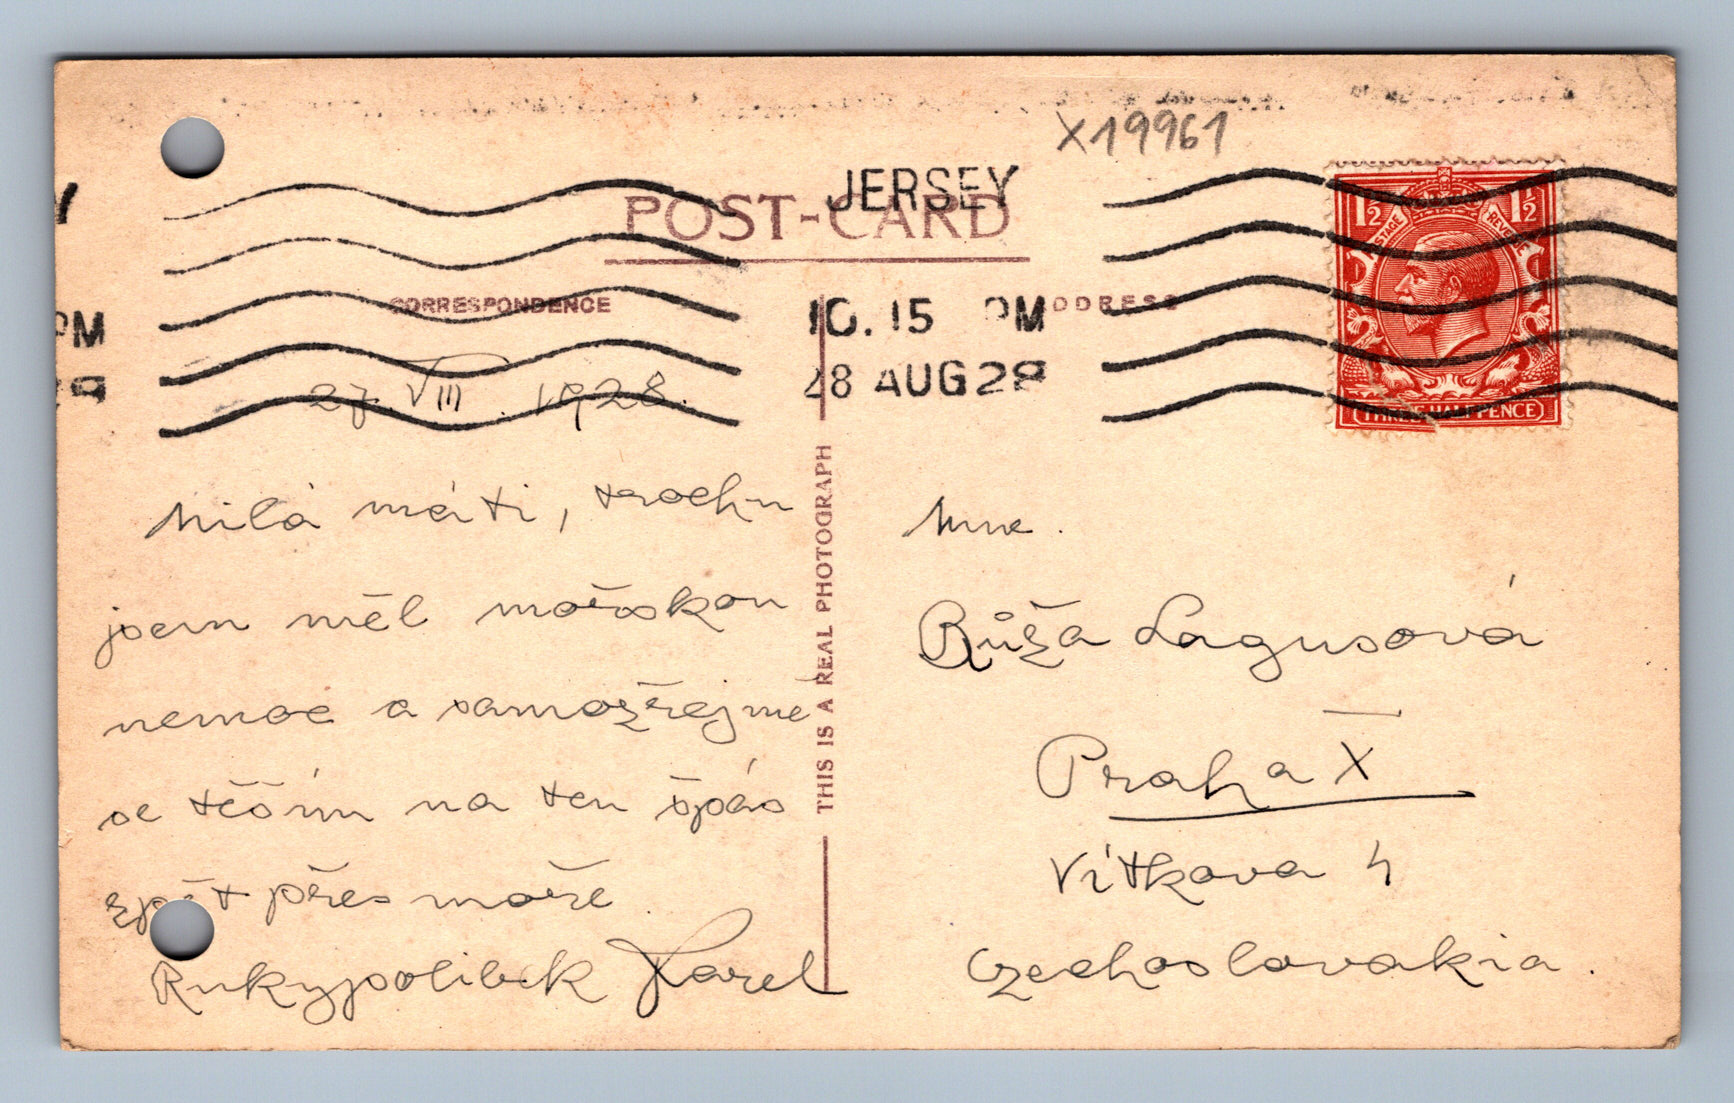 X19961
JERSEY
POST-CARD
CORRESPONDENCE
ADDRESS
10. 15 PM
28 AUG 28
1½ 1½
POSTAGE REVENUE
THREE HALFPENCE
27 VIII. 1928.
Milá máti, trochu
jsem měl mořskou
nemoc a samozřejmě
se těším na ten špás
zpět přes moře.
Rukypolibek Karel
THIS IS A REAL PHOTOGRAPH
Mme.
Růža Lagusová
Praha X
Vítkova 4
Czechoslovakia.